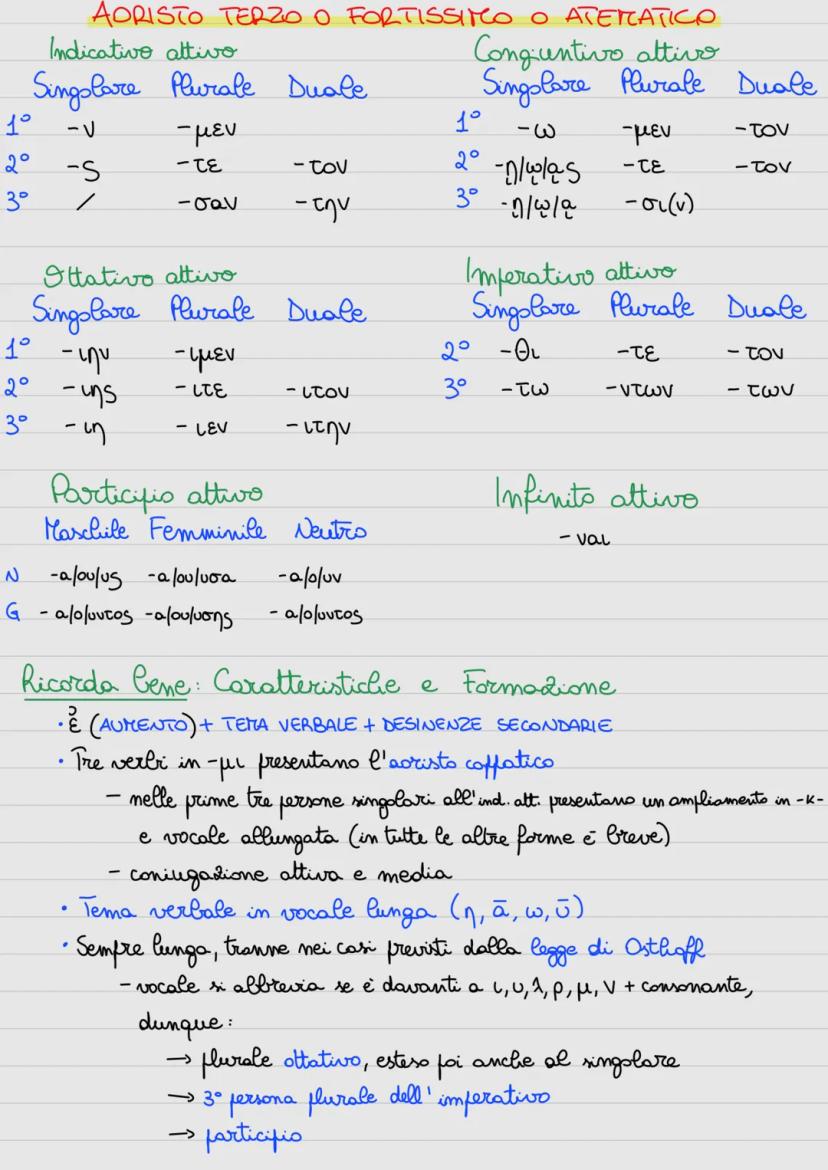 AORISTO TERZO O FORTISSIMO O ATEMATICO
Indicativo attivo
Singolare Plurale Duale
1° -ν -μεν
2° -ς -τε -τον
3° / -σαν -την
Congiuntivo attivo
Singolare Plurale Duale
1° -ω -μεν -τον
2° -ῃ/ῳ/ᾳς -τε -τον
3° -ῃ/ῳ/ᾳ -σι(ν)
Ottativo attivo
Singolare Plurale Duale
1° -ιην -ιμεν
2° -ιης -ιτε -ιτον
3° -ιη -ιεν -ιτην
Imperativo attivo
Singolare Plurale Duale
2° -θι -τε -τον
3° -τω -ντων -των
Participio attivo
Maschile Femminile Neutro
N -α/ου/υς -α/ου/υσα -α/ο/υν
G -α/ο/υντος -α/ου/υσης -α/ο/υντος
Infinito attivo
-ναι
Ricorda bene: Caratteristiche e Formazione
• ἐ (AUMENTO) + TEMA VERBALE + DESINENZE SECONDARIE
• Tre verbi in -μι presentano l'aoristo cappatico
- nelle prime tre persone singolari all'ind. att. presentano un ampliamento in -κ-
e vocale allungata (in tutte le altre forme è breve)
- coniugazione attiva e media
• Tema verbale in vocale lunga (η, ᾱ, ω, ῡ)
• Sempre lunga, tranne nei casi previsti dalla legge di Osthoff
- vocale si abbrevia se è davanti a ι, υ, λ, ρ, μ, ν + consonante,
dunque:
→ plurale ottativo, esteso poi anche al singolare
→ 3° persona plurale dell'imperativo
→ participio